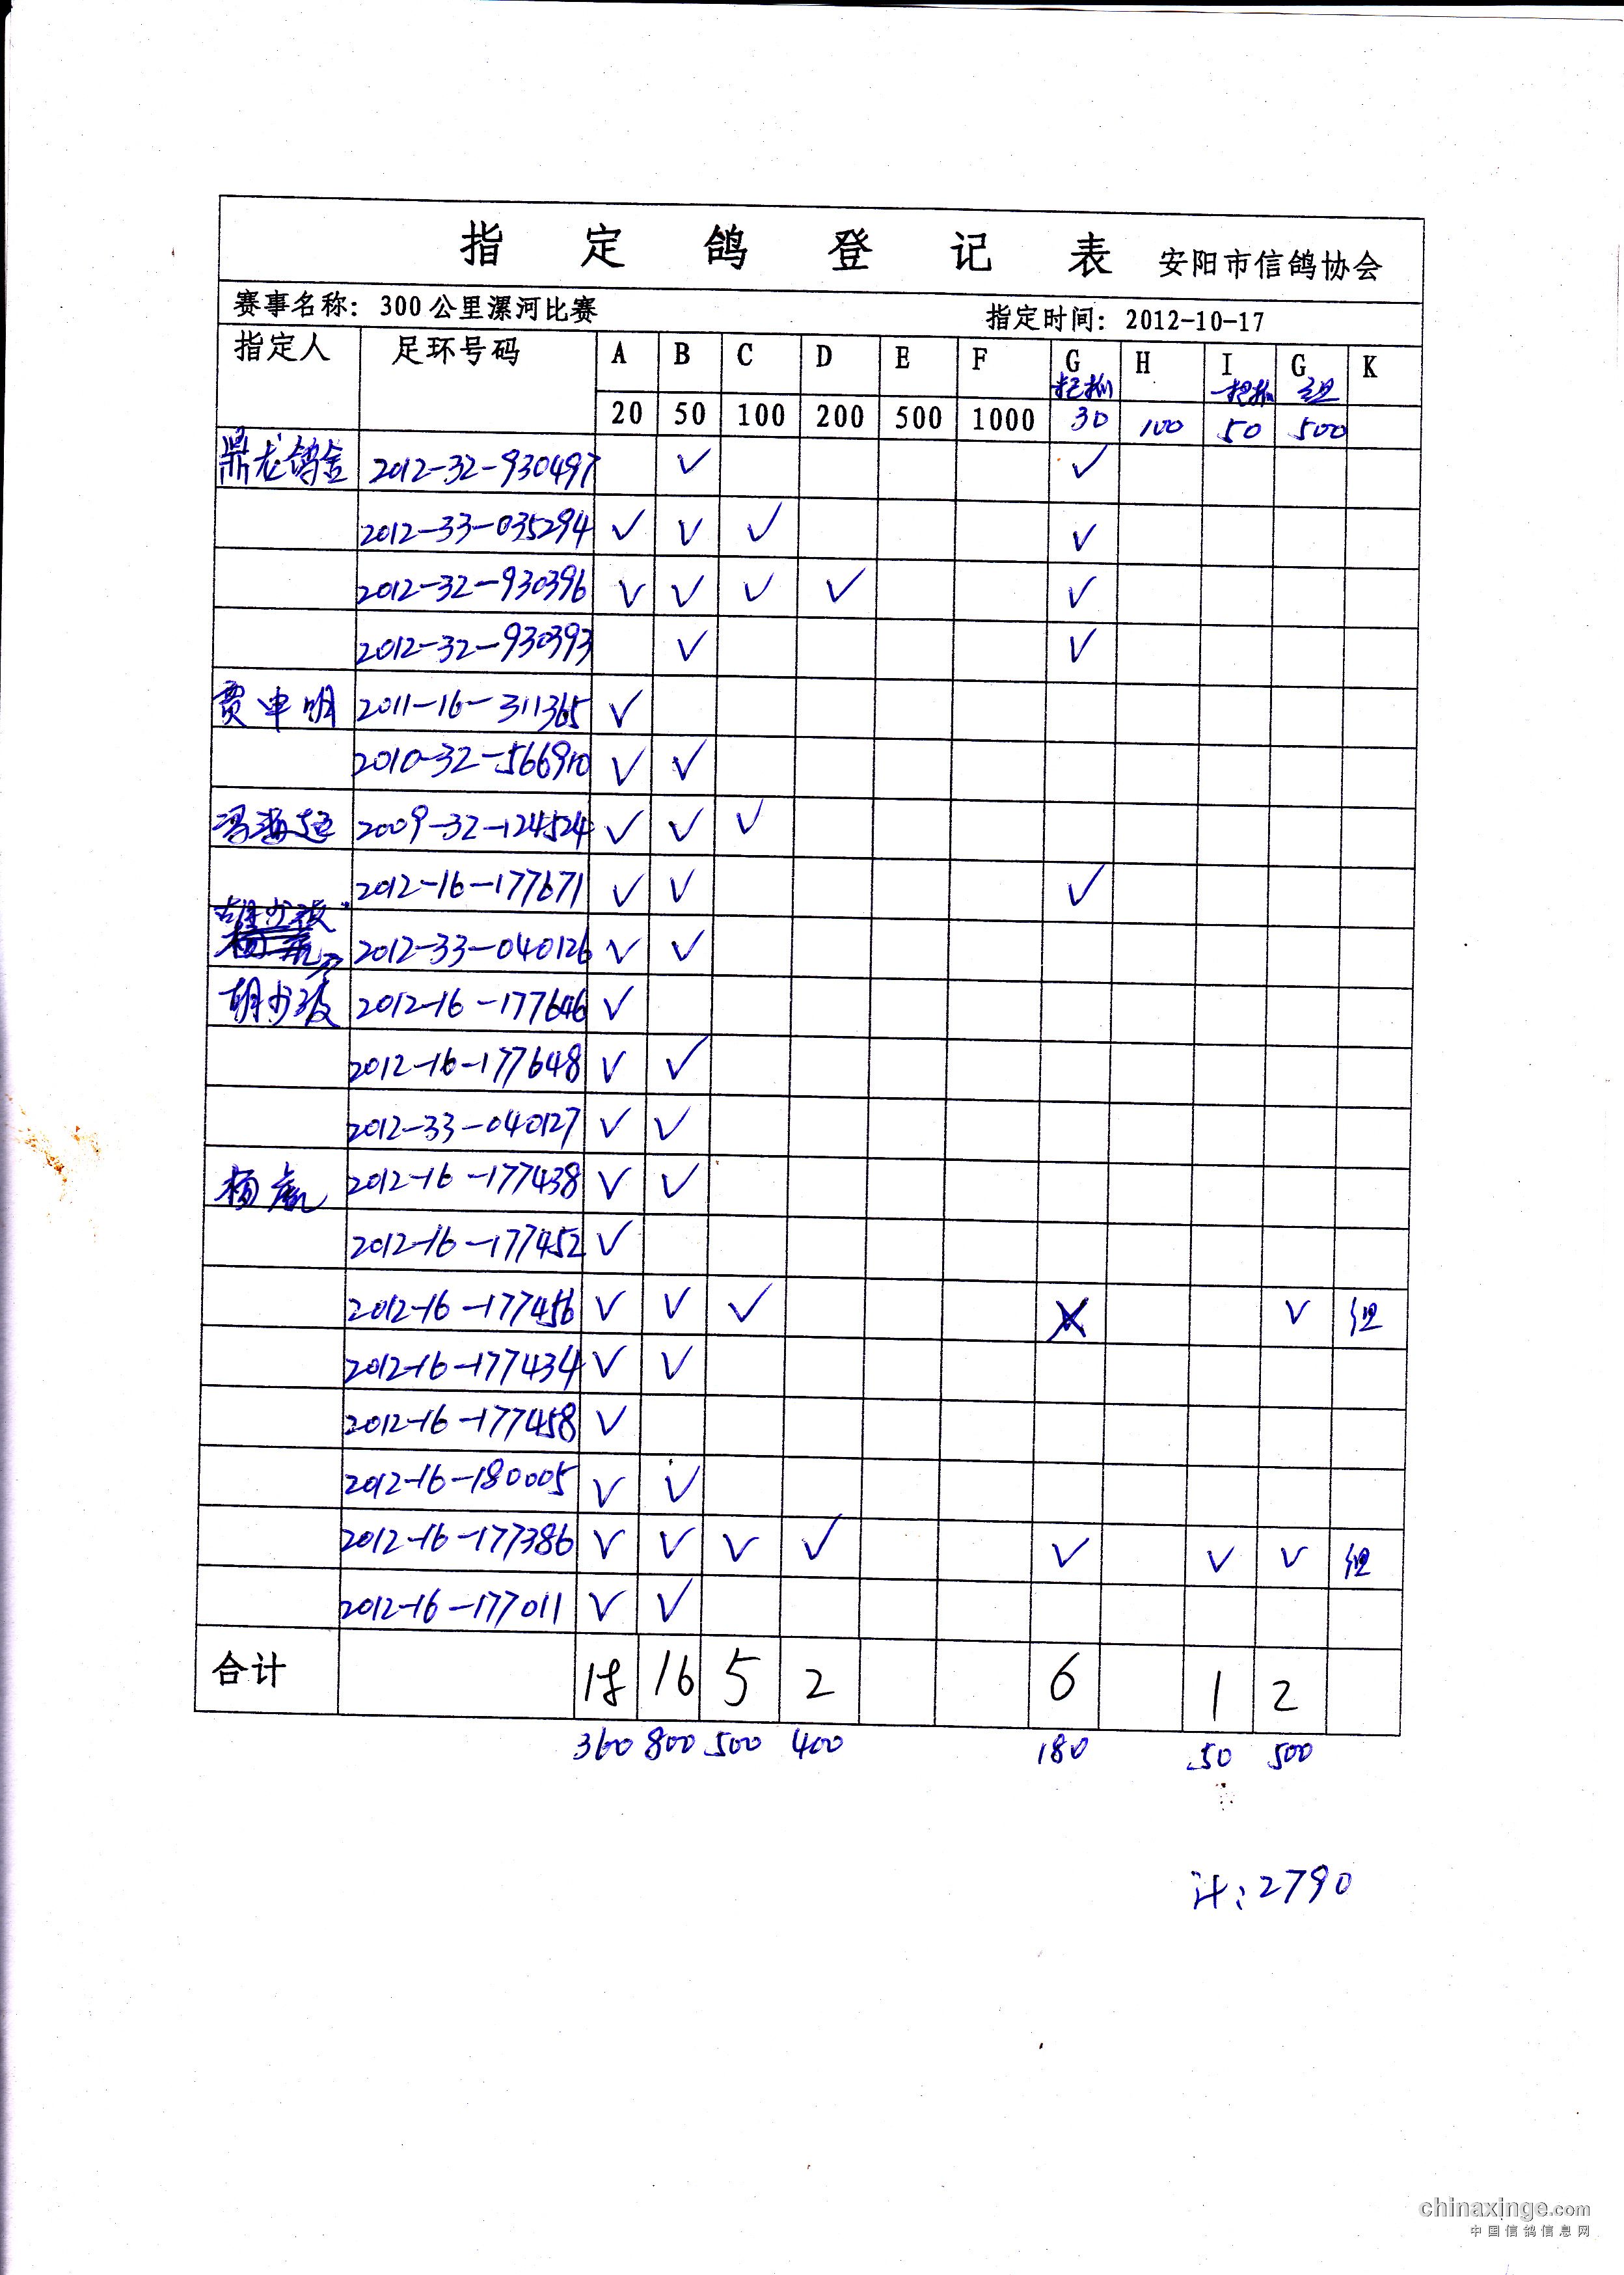 指定鸽登记表 安阳市信鸽协会
赛事名称：300公里漯河比赛 指定时间：2012-10-17
指定人 足环号码 A B C D E F G H I G K
一把抓 组
20 50 100 200 500 1000 30 100 50 500
鼎龙鸽舍 2012-32-930497 √ √
2012-33-035294 √ √ √ √
2012-32-930396 √ √ √ √ √
2012-32-930393 √ √
贾申明 2011-16-311365 √
2010-32-566910 √ √
冯海超 2009-32-124524 √ √ √
2012-16-177671 √ √ √
胡少波
2012-33-040126 √ √
胡少波 2012-16-177646 √
2012-16-177648 √ √
2012-33-040127 √ √
杨 2012-16-177438 √ √
2012-16-177452 √
2012-16-177456 √ √ √ √ 组
2012-16-177434 √ √
2012-16-177458 √
2012-16-180005 √ √
2012-16-177386 √ √ √ √ √ √ √ 组
2012-16-177011 √ √
合计 18 16 5 2 6 1 2
360 800 500 400 180 50 500
计：2790
chinaxinge.com
中国信鸽信息网